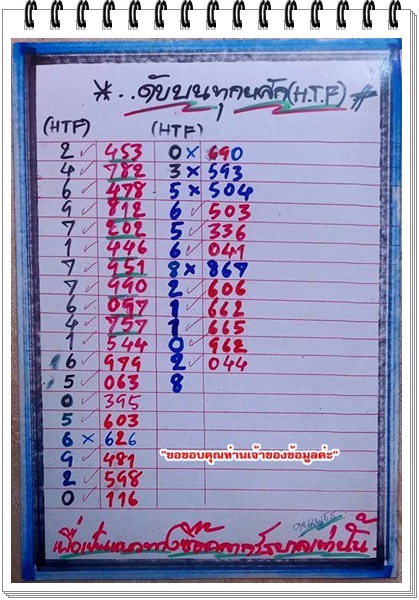 * .. ดับบนทุกหลัก (H.T.F) *
(HTF) (HTF)
2 ✓ 453 0 × 690
4 ✓ 782 3 × 593
6 ✓ 478 5 × 504
9 ✓ 812 6 ✓ 503
7 ✓ 202 5 ✓ 336
1 ✓ 446 6 ✓ 041
7 ✓ 951 8 × 867
7 ✓ 990 2 ✓ 606
6 ✓ 057 1 ✓ 662
4 ✓ 757 1 ✓ 665
1 ✓ 544 0 ✓ 962
6 ✓ 979 2 ✓ 044
5 ✓ 063 8
0 ✓ 395
5 ✓ 603
6 × 626
"ขอขอบคุณท่านเจ้าของข้อมูลค่ะ"
9 ✓ 481
2 ✓ 598
0 ✓ 116
เพื่อเป็นแนวทางซื้อสลากรัฐบาลเท่านั้น